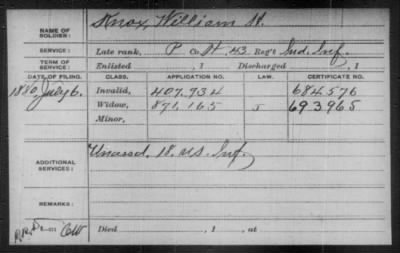 NAME OF SOLDIER: Knox, William H.
SERVICE: Late rank, P Co. H, 43 Reg't Ind. Inf.
TERM OF SERVICE: Enlisted , 1 Discharged , 1
DATE OF FILING. CLASS. APPLICATION NO. LAW. CERTIFICATE NO.
1880, July 6. Invalid, 407.934 684576
Widow, 871,165 693965
Minor,
ADDITIONAL SERVICES: Unassd. 18. US. Inf.
REMARKS:
Died , 1 , at